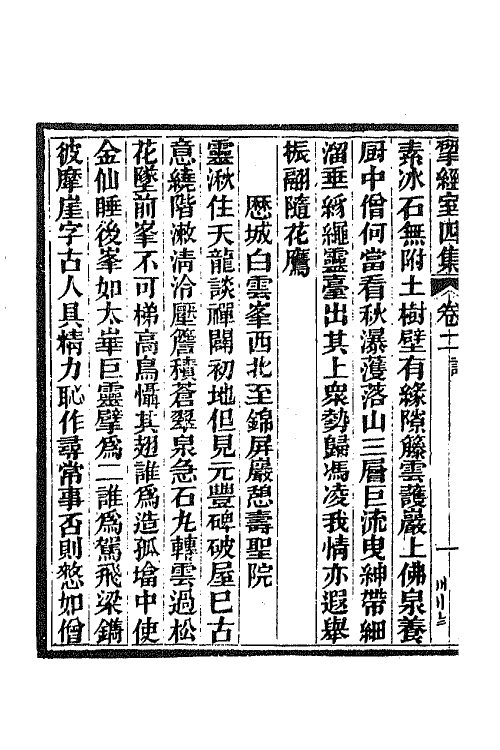 揅經室四集 卷二 詩 一
素冰石無附土樹壁有緣隙籐雲護巖上佛泉養
厨中僧何當看秋瀑濩落山三層巨流曳紳帶細
溜垂紛繩靈臺出其上衆勢歸馮凌我情亦遐舉
振翮隨花鷹
歴城白雲峯西北至錦屏巖憩壽聖院
靈湫住天龍談禪闢初地但見元豐碑破屋已古
意繞階漱清泠壓簷積蒼翠泉急石九轉雲過松
花墜前峯不可梯高鳥懾其翅誰爲造孤墖中使
金仙睡後峯如太華巨靈擘爲二誰爲駕飛梁鐫
彼摩崖字古人具精力恥作尋常事否則愁如僧